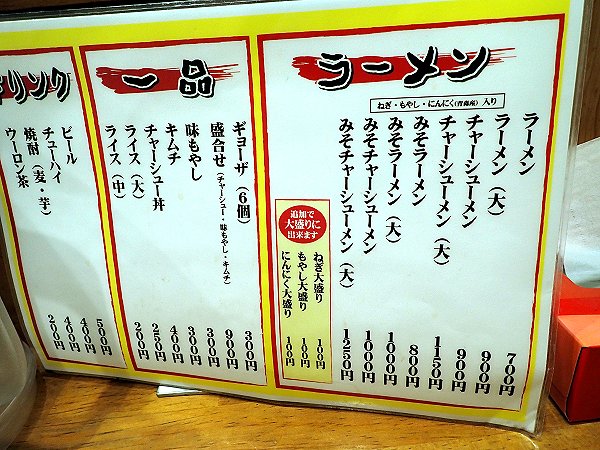 ラーメン
ねぎ・もやし・にんにく(青森産)入り
ラーメン 700円
ラーメン(大) 900円
チャーシューメン 900円
チャーシューメン(大) 1150円
みそラーメン 800円
みそラーメン(大) 1000円
みそチャーシューメン 1000円
みそチャーシューメン(大) 1250円
追加で
大盛りに
出来ます
ねぎ大盛り 100円
もやし大盛り 100円
にんにく大盛り 100円
一品
ギョーザ(6個) 300円
盛合せ(チャーシュー・味もやし・キムチ) 900円
味もやし 300円
キムチ 300円
チャーシュー丼 400円
ライス(大) 250円
ライス(中) 200円
ドリンク
ビール 500円
チューハイ 400円
焼酎(麦・芋) 400円
ウーロン茶 200円